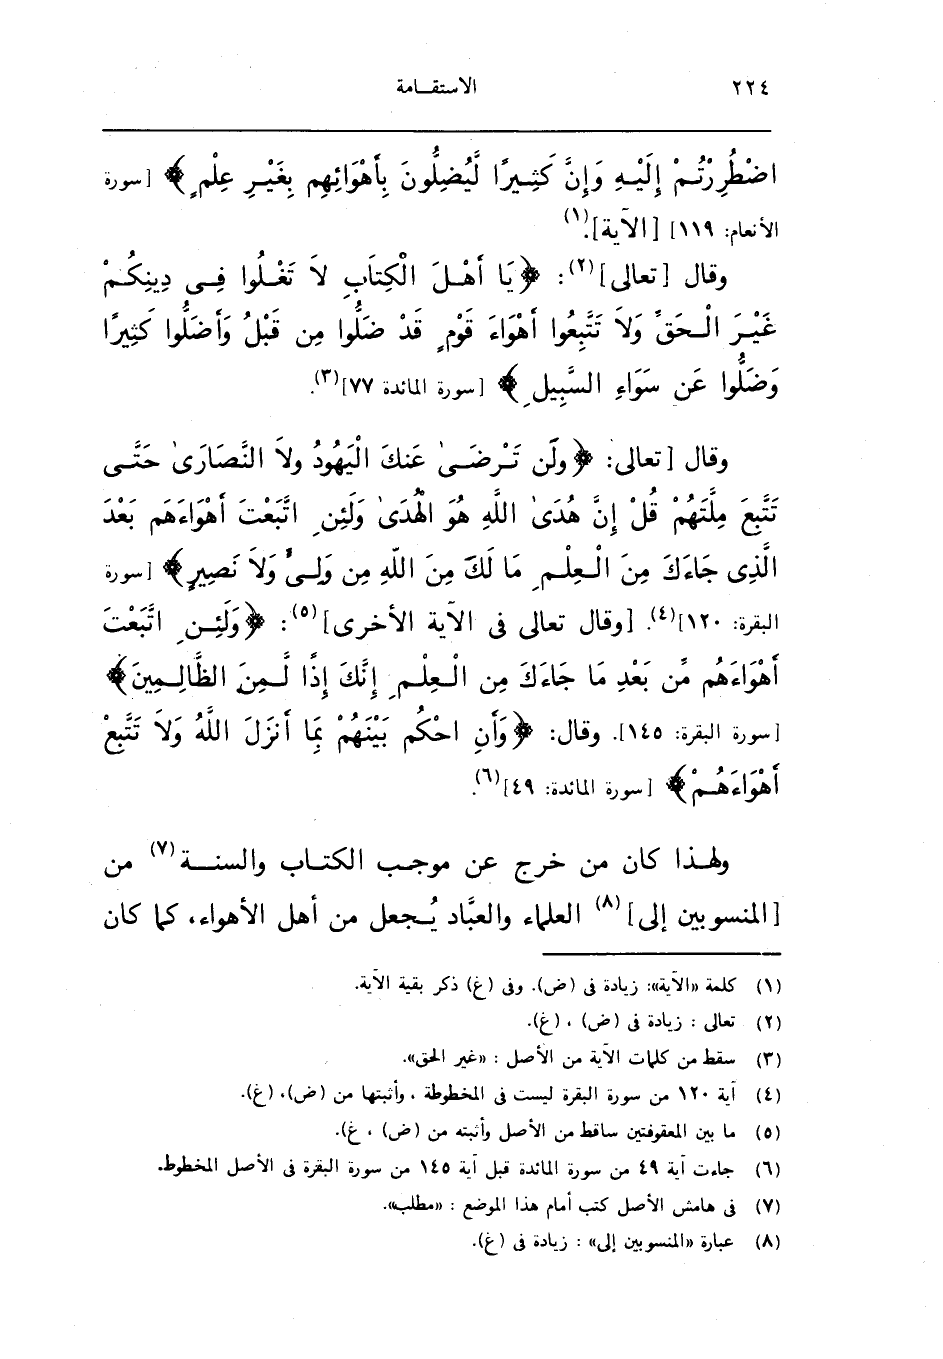 ٢٢٤ الاستقـامة
اضْطُرِرْتُمْ إِلَيْهِ وَإِنَّ كَثِيرًا لَّيُضِلُّونَ بِأَهْوَائِهِم بِغَيْرِ عِلْمٍ﴾ [سورة
الأنعام: ١١٩] [الآية].(١)
وقال [تعالى](٢): ﴿يَا أَهْلَ الْكِتَابِ لاَ تَغْلُوا فِى دِينِكُمْ
غَيْرَ الْحَقِّ وَلاَ تَتَّبِعُوا أَهْوَاءَ قَوْمٍ قَدْ ضَلُّوا مِن قَبْلُ وَأَضَلُّوا كَثِيرًا
وَضَلُّوا عَن سَوَاءِ السَّبِيلِ﴾ [سورة المائدة ٧٧](٣).
وقال [تعالى: ﴿ولَن تَرْضَىٰ عَنكَ الْيَهُودُ ولاَ النَّصَارَىٰ حَتَّى
تَتَّبِعَ مِلَّتَهُمْ قُلْ إِنَّ هُدَىٰ اللَّهِ هُوَ الْهُدَىٰ وَلَئِنِ اتَّبَعْتَ أَهْوَاءَهَم بَعْدَ
الَّذِى جَاءَكَ مِنَ الْعِلْمِ مَا لَكَ مِنَ اللّهِ مِن وَلِىٍّ وَلاَ نَصِيرٍ﴾ [سورة
البقرة: ١٢٠](٤). [وقال تعالى فى الآية الأخرى](٥): ﴿وَلَئِنِ اتَّبَعْتَ
أَهْوَاءَهُم مِّن بَعْدِ مَا جَاءَكَ مِن الْعِلْمِ إِنَّكَ إِذًا لَّمِنَ الظَّالِمِينَ﴾
[سورة البقرة: ١٤٥]. وقال: ﴿وَأَنِ احْكُم بَيْنَهُمْ بِمَا أَنزَلَ اللَّهُ وَلاَ تَتَّبِعْ
أَهْوَاءَهُمْ﴾ [سورة المائدة: ٤٩](٦).
ولهذا كان من خرج عن موجب الكتاب والسنة(٧) من
[المنسوبين إلى](٨) العلماء والعبَّاد يُجعل من أهل الأهواء، كما كان
(١) كلمة «الآية»: زيادة فى (ض). وفى (غ) ذكر بقية الآية.
(٢) تعالى : زيادة فى (ض) ، (غ).
(٣) سقط من كلمات الآية من الأصل : «غير الحق».
(٤) آية ١٢٠ من سورة البقرة ليست فى المخطوطة ، وأثبتها من (ض)، (غ).
(٥) ما بين المعقوفتين ساقط من الأصل وأثبته من (ض) ، غ).
(٦) جاءت آية ٤٩ من سورة المائدة قبل آية ١٤٥ من سورة البقرة فى الأصل المخطوط.
(٧) فى هامش الأصل كتب أمام هذا الموضع : «مطلب».
(٨) عبارة «المنسوبين إلى» : زيادة فى (غ).